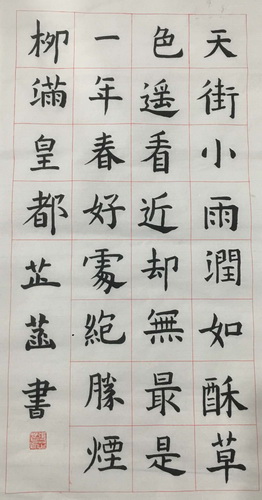 天街小雨潤如酥草
色遥看近却無最是
一年春好處絶勝煙
柳滿皇都芷菡書